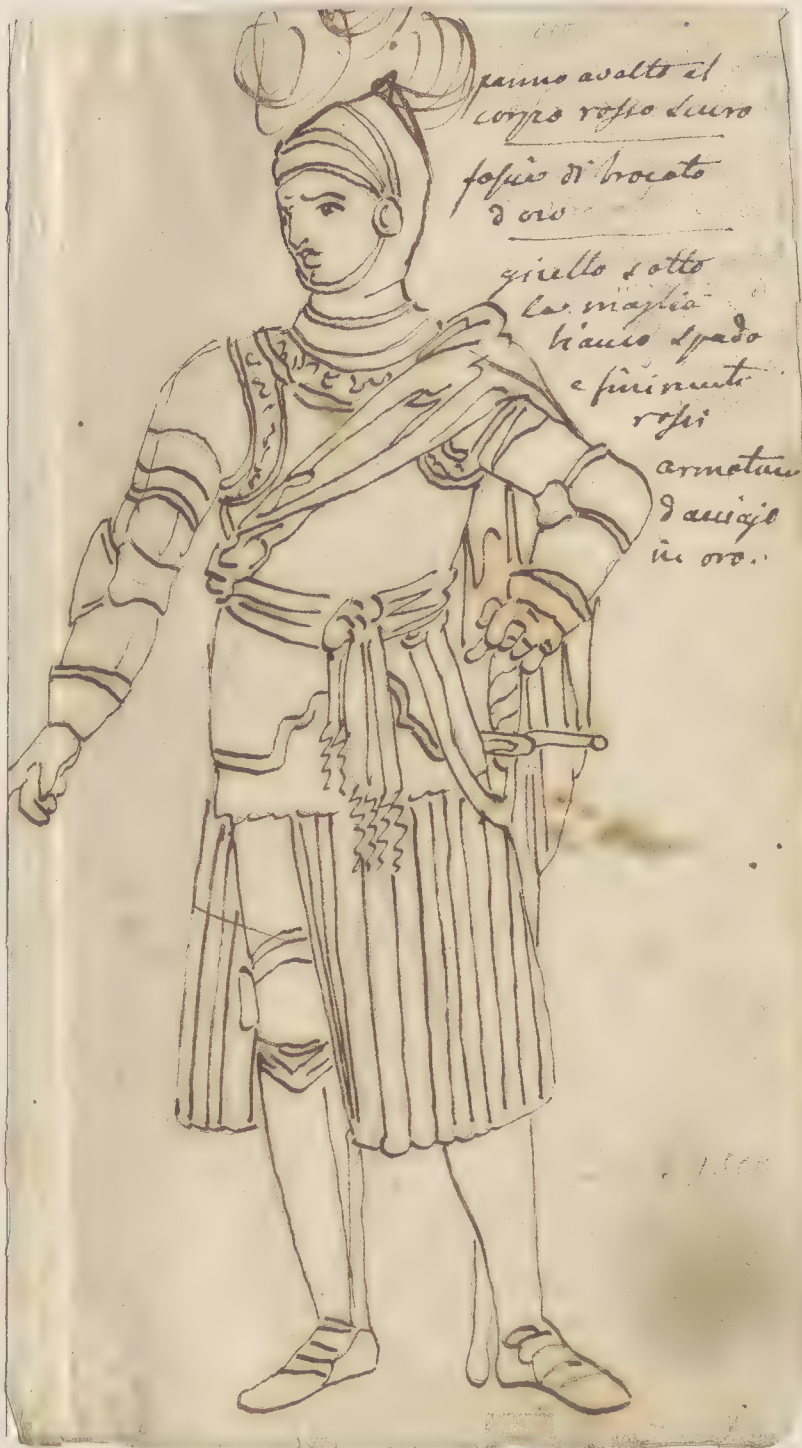 panno avolto al
corpo rosso scuro
fascia di brocato
d oro
girello sotto
la maglia
bianco spada
e finimenti
rossi
armatura
d acciajo
in oro.